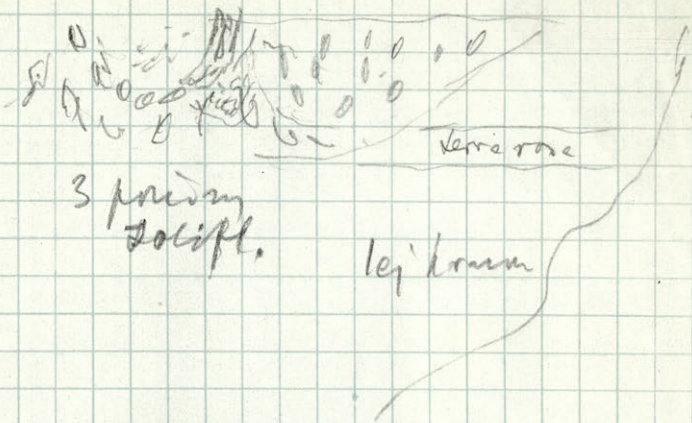 terra rosa
3 poziomy
solifl.
lej krasu